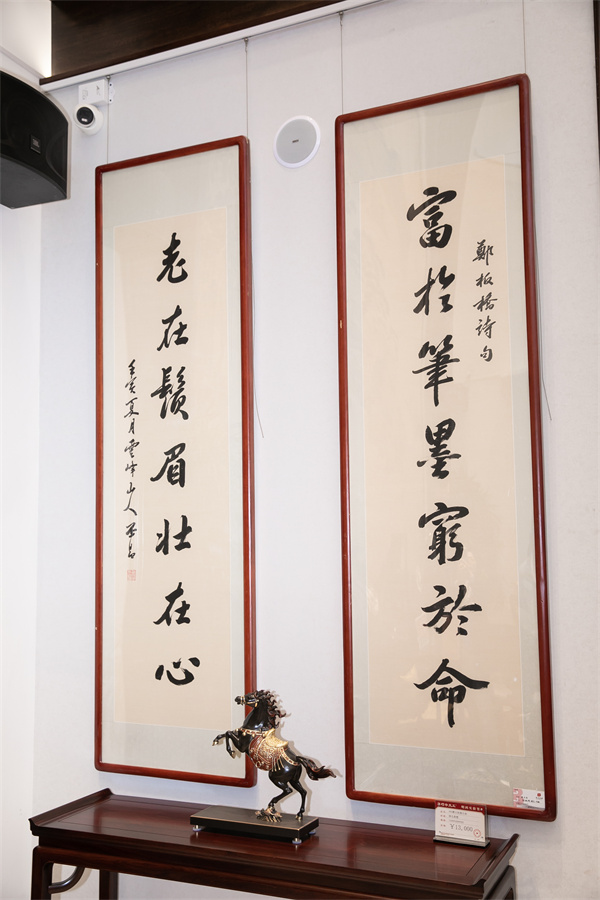 富於筆墨窮於命
鄭板橋詩句
老在鬚眉壯在心
壬寅夏月雲峰山人
¥13,000
JBL